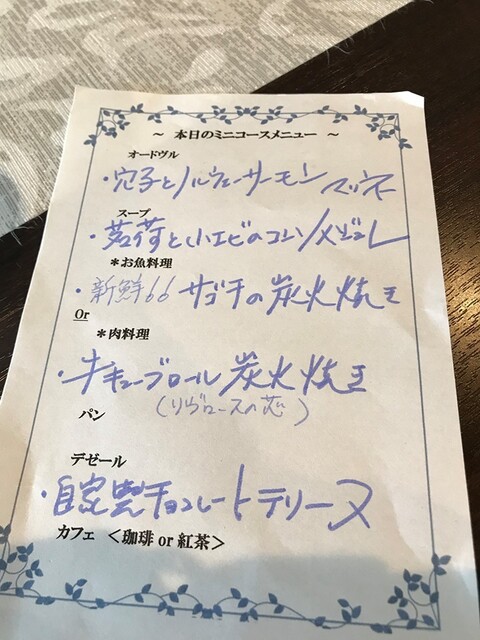 ~ 本日のミニコースメニュー ~
オードヴル
・穴子とノルウェーサーモン マリネ
スープ
・茗荷と小エビのコンソメジュレ
＊お魚料理
・新鮮 サゴチの炭火焼き
Or
＊肉料理
・キューブロール炭火焼き
(リヴロースの芯)
パン
デゼール
・自家製チョコレートテリーヌ
カフェ ＜珈琲 or 紅茶＞